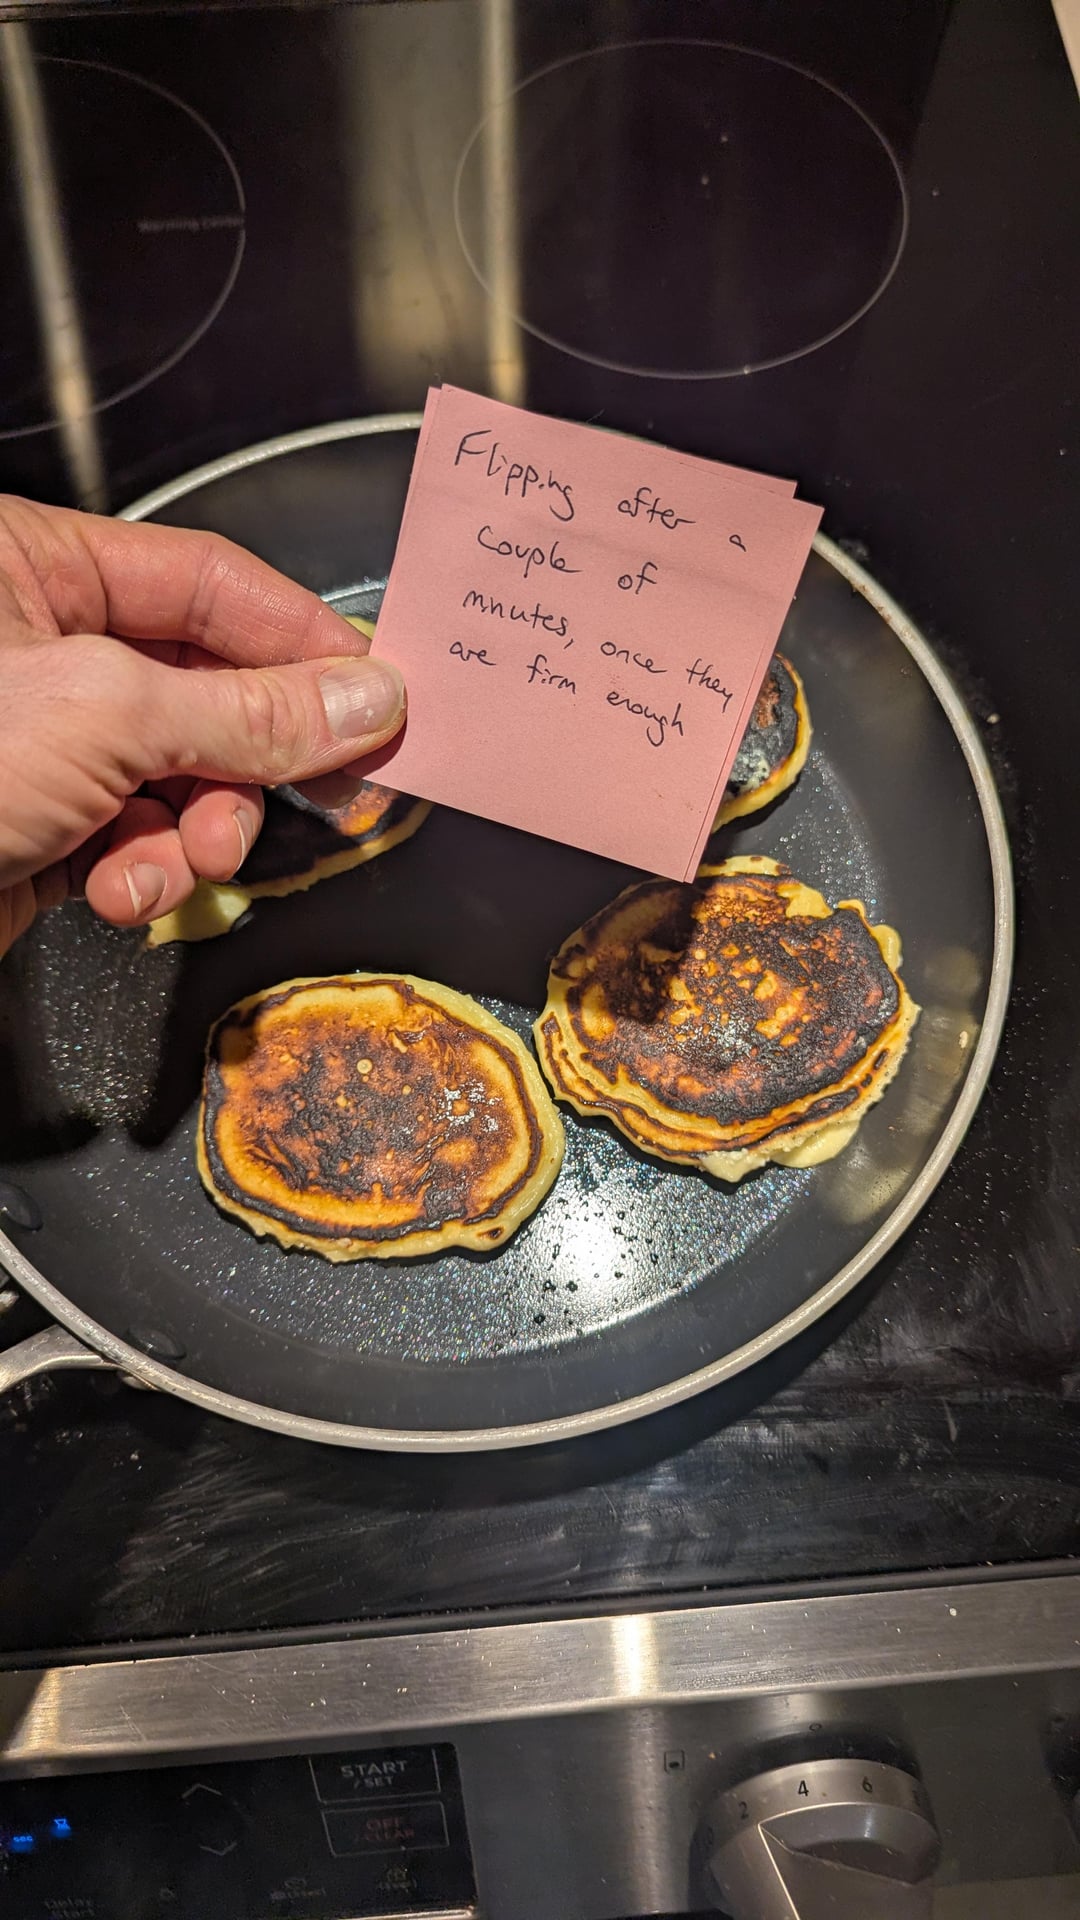 Warming Center
Flipping after a
couple of
minutes, once they
are firm enough
START
/ SET
OFF
/ CLEAR
sec
Delay
Start
2 4 6